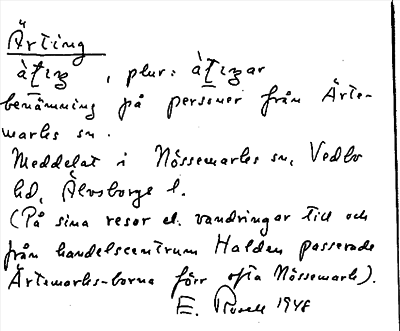 Ärting
àt̠iŋ, plur: àt̠iŋar
benämning på personer från Ärte-
marks sn.
Meddelat i Nössemarks sn, Vedbo
hd, Älvsborgs l.
(På sina resor el. vandringar till och
från handelscentrum Halden passerade
Ärtemarks-borna förr ofta Nössemark).
E. 1948